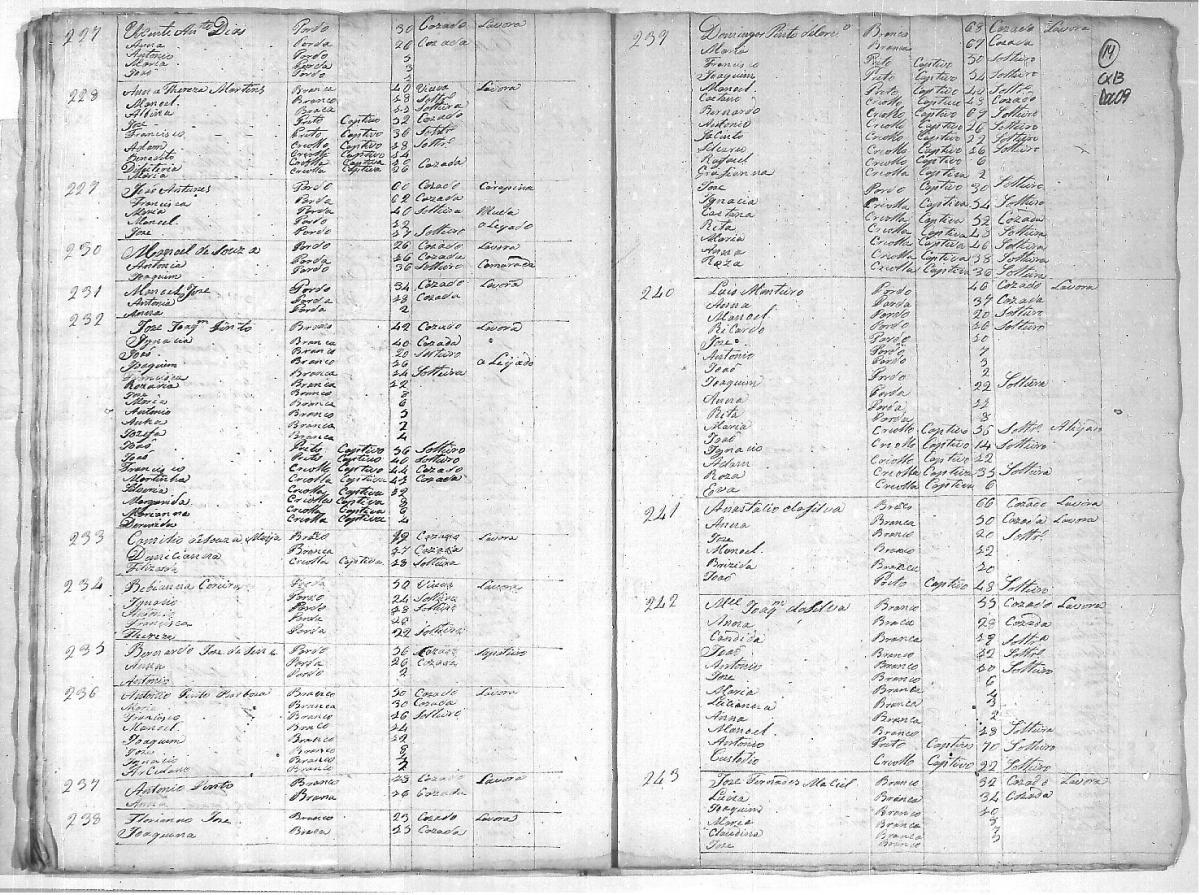 227 Vicente Anto Dias Pardo 30 Cazado Lavora
Anna Parda 26 Cazada
Antonio Pardo 5
Maria Parda 3
João Pardo 2
228 Anna Thereza Martins Branca 40 Viuva Lavora
Manoel Branco 18 Soltro
Albina Braca 22 Solteira
Joze Preto Captivo 32 Cazado
Francisco Preto Captivo 36 Soltro
Adam Criollo Captivo 18 Soltro
Benedito Criollo Captivo 14
Criolla Captiva 26 Cazada
Maria Criolla Captiva 26
229 João Antunes Pardo 60 Cazado Carapina
Francisca Parda 62 Cazada
Maria Parda 40 Solteira Muda
Manoel Pardo 22 aLejado
Joze Pardo 17 Solteiro
230 Manoel de Souza Pardo 26 Cazado Lavora
Antonia Parda 26 Cazada
Joaquim Pardo 36 Solteiro Camarada
231 Manoel Joze Pardo 34 Cazado Lavora
Antonia Parda 18 Cazada
Anna Parda 2
232 Joze Joaqm Pinto Branco 42 Cazado Lavora
Ignacia Branca 40 Cazada
João Branco 20 Solteiro
Joaquim Branco 16 aLeijado
Francisca Branca 14 Solteira
Rozaria Branca 12
Joze Branco 8
Maria Branca 6
Antonio Branco 5
Anna Branca 2
Jozefa Branca 4
João Preto Captivo 36 Solteiro
João Preto Captivo 40 Solteiro
Francisco Criollo Captivo 44 Cazado
Martinha Criolla Captiva 43 Cazada
Silveria Criolla Captiva 12
Margarida Criolla Captiva 8
Marianna Criolla Captiva 6
Criolla Captiva 4
233 de Souza Branco 19 Cazado Lavora
Damiciana Branca 17 Cazada
Felizarda Criolla Captiva 18 Solteira
234 Bebianna Correa Parda 50 Viuva Lavora
Ignacio Pardo 24 Solteiro
Antonio Pardo 18 Solteiro
Francisca Parda 26
Thereza Parda 22 Solteira
235 Bernardo Joze da Silva Pardo 36 Cazado
Anna Parda 26 Cazada
Antonio Pardo 2
236 Antonio Pinto Barboza Branco 50 Cazado Lavora
Maria Branca 30 Cazada
Francisco Branco 16 Solteiro
Manoel Braco 14
Joaquim Branco 12
Joze Branco 8
Ignacio Branco 4
Branco 2
237 Antonio Pinto Branco 23 Cazado Lavora
Anna Branca 26 Cazada
238 Floriano Joze Branco 23 Cazado Lavora
Joaquina Braca 23 Cazada
239 Domingos Pinto Branco 68 Cazado Lavora
Maria Branca 67 Cazada
Francisco Preto Captivo 50 Solteiro
Joaquim Preto Captivo 54 Solteiro
Manoel Preto Captivo 40 Soltro
Caetano Criollo Captivo 48 Cazado
Bernardo Criollo Captivo 69 Solteiro
Antonio Criollo Captivo 26 Solteiro
Jacinto Criollo Captivo 22 Solteiro
Criollo Captivo 16 Solteiro
Rafael Criollo Captivo 6
Criolla Captiva 2
Joze Pardo Captivo 30 Solteiro
Ignacia Criolla Captiva 54 Solteiro
Caetana Criolla Captiva 52 Cazada
Rita Criolla Captiva 43 Solteira
Maria Criolla Captiva 46 Solteira
Anna Criolla Captiva 38 Solteira
Roza Criolla Captiva 36 Solteira
240 Luis Monteiro Pardo 46 Cazado Lavora
Anna Parda 37 Cazada
Manoel Pardo 20 Solteiro
Ricardo Pardo 16 Solteiro
Joze Pardo 10
Antonio Pardo 7
João Pardo 3
Joaquim Pardo 2
Anna Parda 22 Solteira
Rita Parda 12
Maria Parda 8
João Criollo Captivo 56 Soltro
Ignacio Criollo Captivo 14 Solteiro
Adam Criollo Captivo 12
Roza Criolla Captiva 35 Solteira
Eva Criolla Captiva 6
241 Anastacio da Silva Braco 66 Cazado Lavora
Anna Branca 50 Cazada Lavora
Joze Branco 20 Soltro
Manoel Branco 12
Brizida Branca 20
João Preto Captivo 48 Solteiro
242 Mel Joaqm da Silva Branco 55 Cazado Lavora
Anna Braca 28 Cazada
Candida Branca 19 Soltra
João Branco 12 Soltro
Antonio Branco 10 Solteiro
Joze Branco 6
Maria Branca 4
Lucianna Branca 3
Anna Branca 2
Manoel Branco 18 Solteiro
Antonio Preto Captivo 70 Solteiro
Custodio Criollo Captivo 32 Solteiro
243 Joze Fernandes Maciel Branco 32 Cazado Lavora
Luiza Branca 34 Cazada
Joaquim Branco 10
Maria Branca 5
Claudina Branca 3
Joze Branco
14
CX13
Doc 09